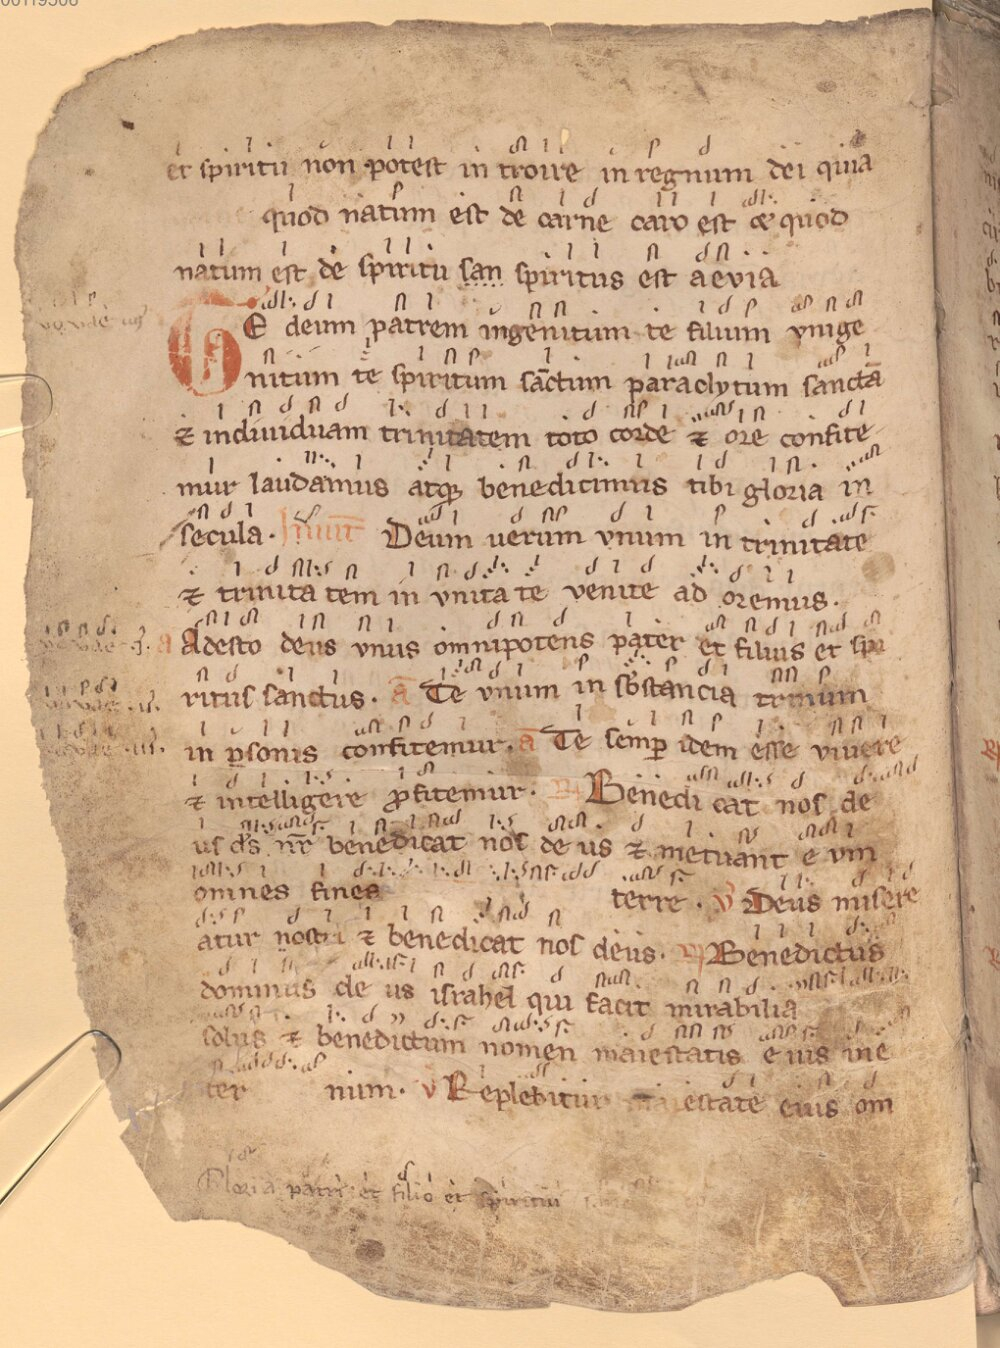 et spiritu non potest in troire in regnum dei quia
quod natum est de carne caro est & quod
natum est de spiritu san spiritus est aevia
TE deum patrem ingenitum te filium vnige
nitum te spiritum sanctum paraclytum sanctā
& individuam trinitatem toto corde & ore confite
mur laudamus atq; benedicimus tibi gloria in
secula. Deum uerum vnum in trinitate
& trinita tem in vnita te venite ad oremus.
a Adesto deus vnus omnipotens pater et filius et spi
ritus sanctus. ā Te vnum in sb̄stancia trinum
in psonis confitemur. ā Te semp idem esse vivere
& intelligere pfitemur. R Benedi cat nos de
us ds nr̄ benedicat nos de us & metuant e vm
omnes fines terre. v Deus misere
atur nostri & benedicat nos deus. R Benedictus
dominus de us israhel qui facit mirabilia
solus & benedictum nomen maiestatis e ius in e
ter nium. v Replebitur maiestate eius om
Gloria patri et filio et spiritui